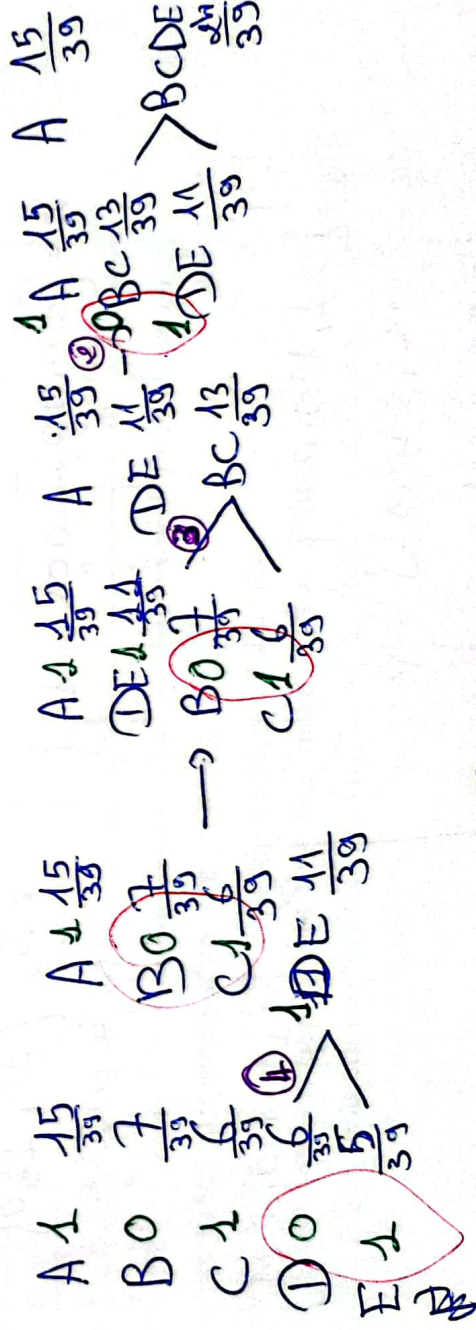 A 1 15/39
B 0 7/39
C 1 6/39
D 0 6/39
E 1 5/39
4
A 1 15/39
B 0 7/39
C 1 6/39
1 DE 11/39
→
A 1 15/39
DE 1 11/39
B 0 7/39
C 1 6/39
3
A 15/39
DE 11/39
BC 13/39
2 →
1 A 15/39
0 BC 13/39
1 DE 11/39
A 15/39
BCDE 24/39